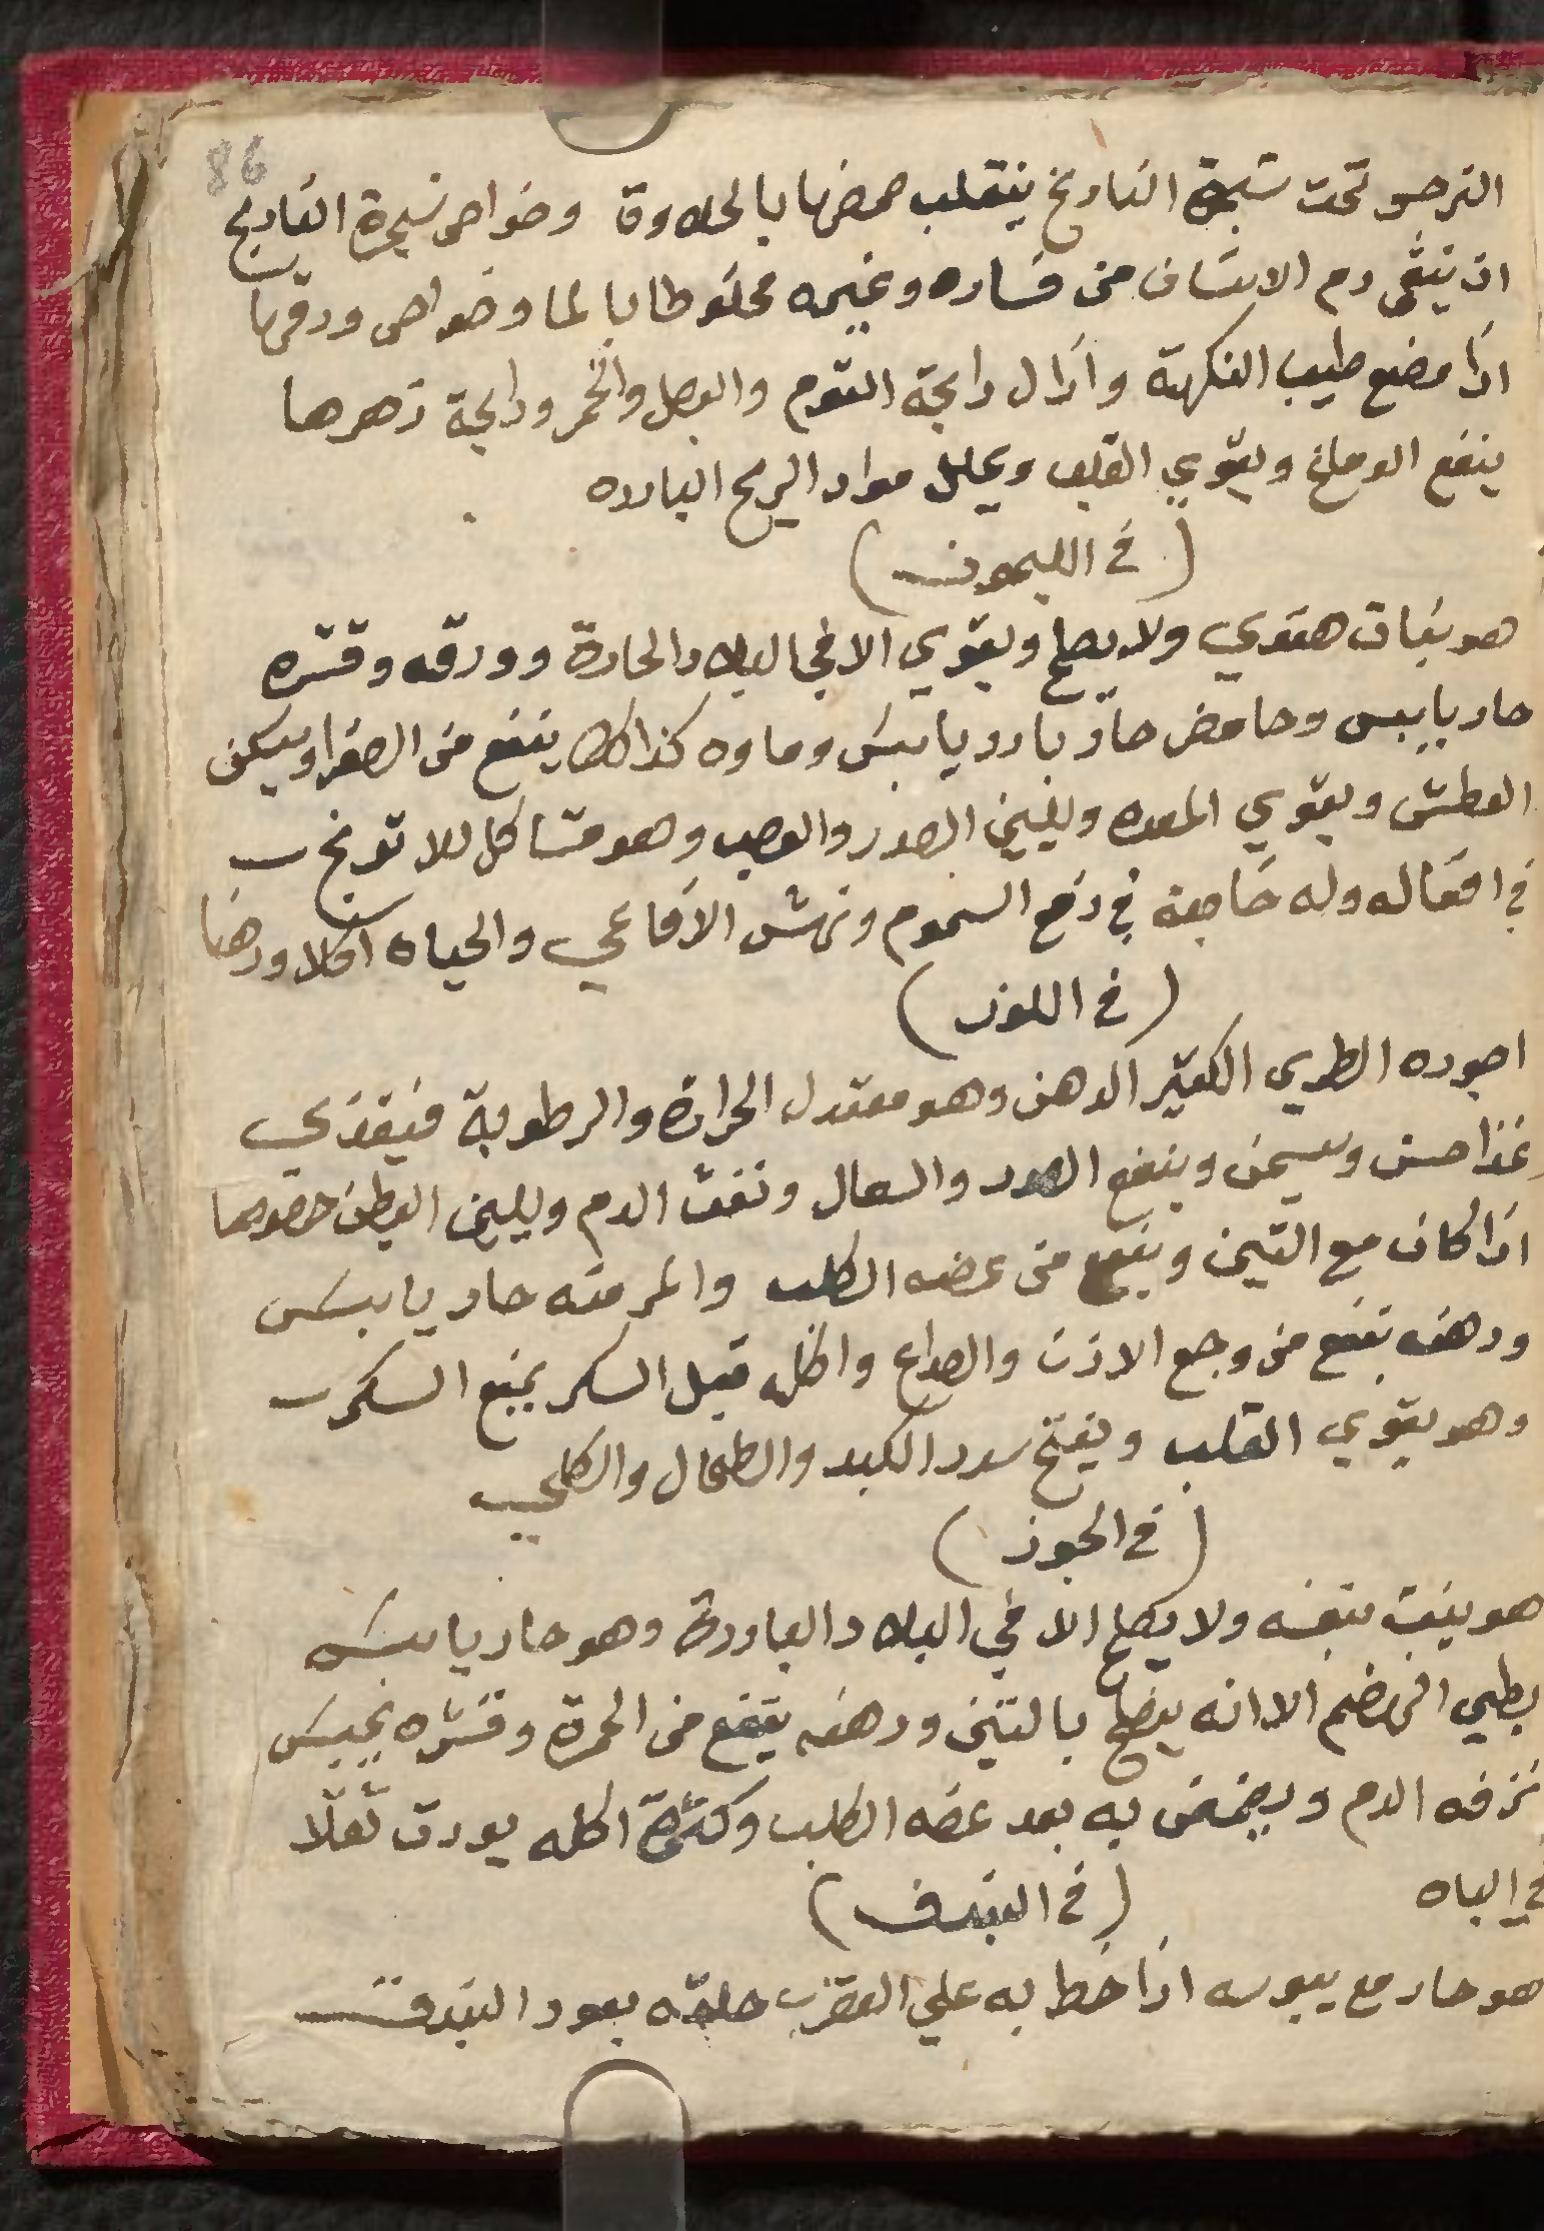 86
النرجس تحت شجرة النارنج ينقلب حمضها بالحلاوة وخواص شجرة النارنج
ان ينقي دم الانسان من فساده وغيره مخلوطا بالما وخواص ورقها
اذا مضع طيب النكهة وازال رايحة التوم والبصل والخمر ورايحة زهرها
ينفع الدماغ ويقوي القلب ويحلل مواد الريح البارده
(في الليمون)
هو نبات هندي ولا يصلح ويقوي الا في البلاد الحارة وورقه وقشره
حار يابس وحامض حاد بارد يابس وماوه كذالك ينفع من الصفرا ويسكن
العطش ويقوي المعده ويلين الصدر والعصب وهو مشاكل للاترنج
في افعاله وله خاصة في دفع السموم ونهش الافاعي والحياه اكلا ودهنا
(في اللوز)
اجوده الطري الكثير الدهن وهو معتدل الحرارة والرطوبة فيغذي
غذا حسن ويسمن وينفع الصدر والسعال ونفث الدم ويلين البطن خصوصا
اذا كان مع التين وينفع من عضه الكلب والمر منه حار يابس
ودهنه ينفع من وجع الاذن والصداع واكله قبل السكر يمنع السكر
وهو يقوي القلب ويفتح سدد الكبد والطحال والكلي
(في الجوز)
هو ينبت بنفسه ولا يصلح الا في البلاد الباردة وهو حار يابس
بطي الهضم الا انه يصلح بالتين ودهنه ينفع من الحمرة وقشره يحبس
نزفه الدم ويضمض به بعد عضه الكلب وكثرة اكله يورث ثقلا
في الباه
(في البندق)
هو حار مع يبوسه اذا خط به علي العقرب حلقه بعود البندق